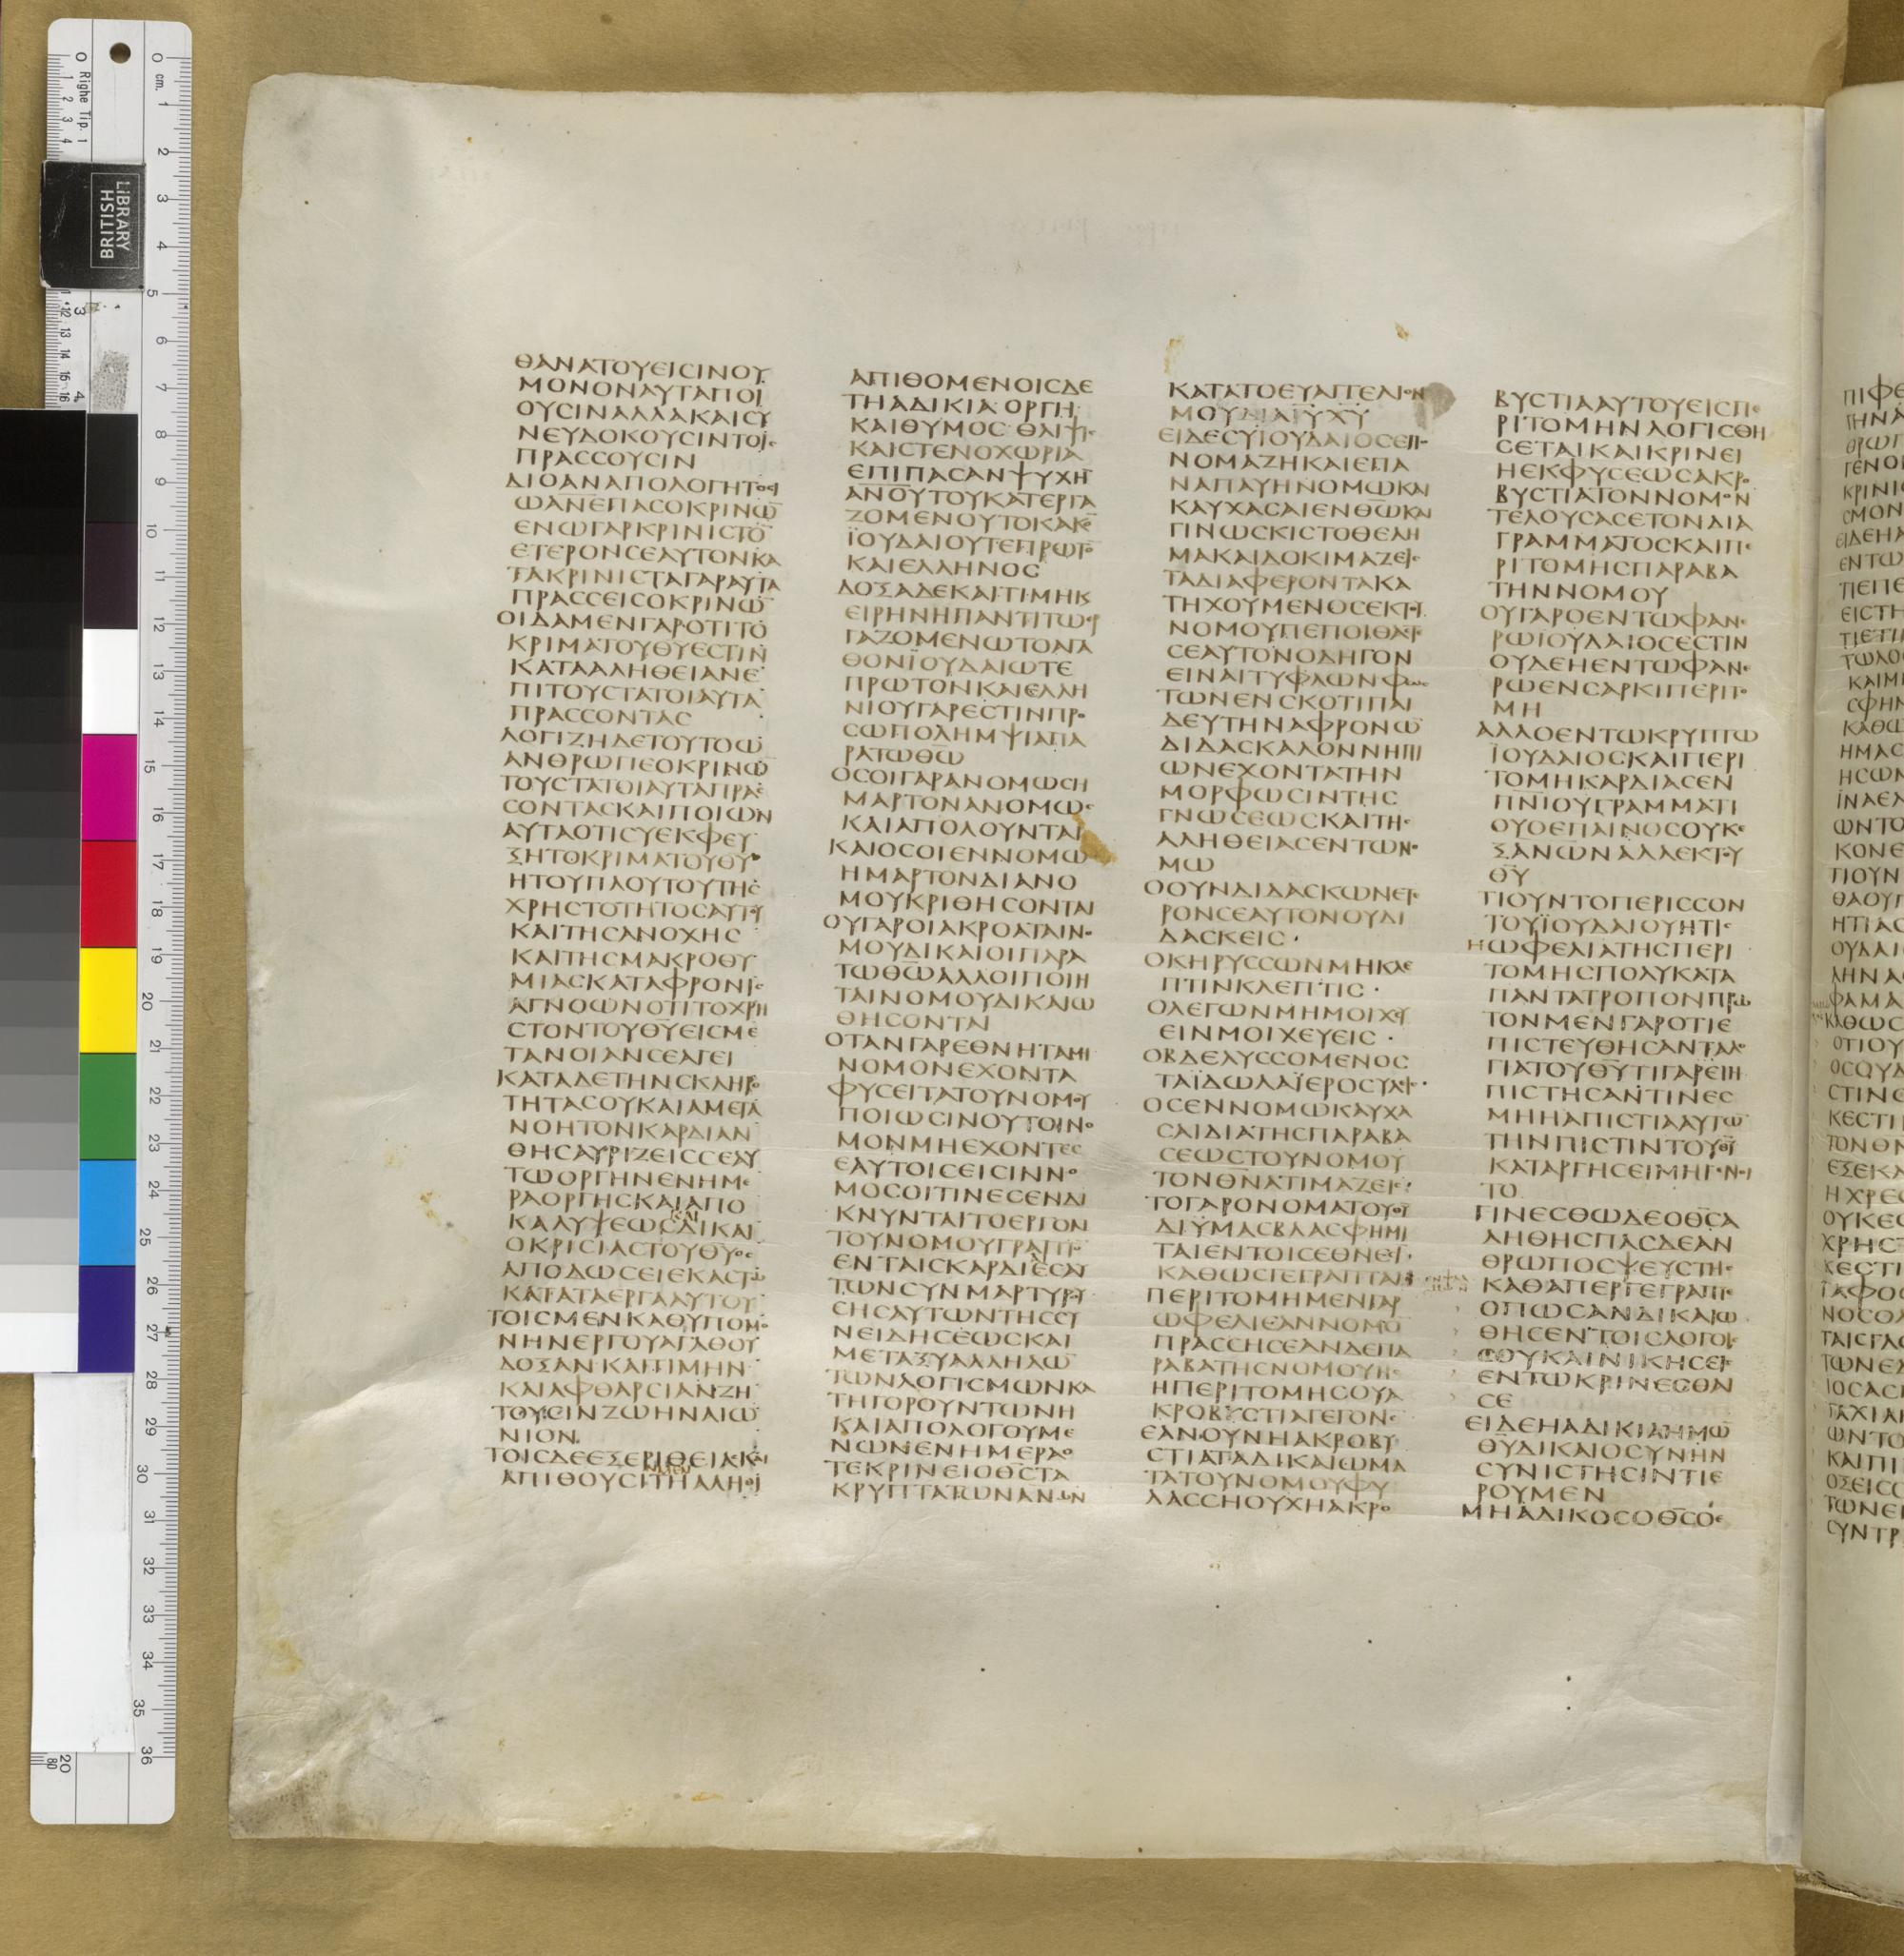 ΘΑΝΑΤΟΥΕΙϹΙΝΟΥ
ΜΟΝΟΝΑΥΤΑΠΟΙ
ΟΥϹΙΝΑΛΛΑΚΑΙϹΥ
ΝΕΥΔΟΚΟΥϹΙΝΤΟΙϲ
ΠΡΑϹϹΟΥϹΙΝ
ΔΙΟΑΝΑΠΟΛΟΓΗΤΟϹΕΙ
ΩΑΝΕΠΑϹΟΚΡΙΝΩ̅
ΕΝΩΓΑΡΚΡΙΝΙϹΤΟ̅
ΕΤΕΡΟΝϹΕΑΥΤΟΝΚΑ
ΤΑΚΡΙΝΙϹΤΑΓΑΡΑΥΤΑ
ΠΡΑϹϹΕΙϹΟΚΡΙΝΩ̅
ΟΙΔΑΜΕΝΓΑΡΟΤΙΤΟ
ΚΡΙΜΑΤΟΥΘ̅Υ̅ΕϹΤΙΝ
ΚΑΤΑΑΛΗΘΕΙΑΝΕ
ΠΙΤΟΥϹΤΑΤΟΙΑΥΤΑ
ΠΡΑϹϹΟΝΤΑϹ
ΛΟΓΙΖΗΔΕΤΟΥΤΟΩ
ΑΝΘΡΩΠΕΟΚΡΙΝΩ̅
ΤΟΥϹΤΑΤΟΙΑΥΤΑΠΡΑϹ
ϹΟΝΤΑϹΚΑΙΠΟΙΩΝ
ΑΥΤΑΟΤΙϹΥΕΚΦΕΥ
ΞΗΤΟΚΡΙΜΑΤΟΥΘ̅Υ̅
ΗΤΟΥΠΛΟΥΤΟΥΤΗϹ
ΧΡΗϹΤΟΤΗΤΟϹΑΥΤΟΥ
ΚΑΙΤΗϹΑΝΟΧΗϹ
ΚΑΙΤΗϹΜΑΚΡΟΘΥ
ΜΙΑϹΚΑΤΑΦΡΟΝΙϹ
ΑΓΝΟΩΝΟΤΙΤΟΧΡΗ
ϹΤΟΝΤΟΥΘ̅Υ̅ΕΙϹΜΕ
ΤΑΝΟΙΑΝϹΕΑΓΕΙ
ΚΑΤΑΔΕΤΗΝϹΚΛΗΡΟ
ΤΗΤΑϹΟΥΚΑΙΑΜΕΤΑ
ΝΟΗΤΟΝΚΑΡΔΙΑΝ
ΘΗϹΑΥΡΙΖΕΙϹϹΕΑΥ
ΤΩΟΡΓΗΝΕΝΗΜΕ
ΡΑΟΡΓΗϹΚΑΙΑΠΟ
ΚΑΛΥΨΕΩϹΔΙΚΑΙ
ΟΚΡΙϹΙΑϹΤΟΥΘ̅Υ̅ΟϹ
ΑΠΟΔΩϹΕΙΕΚΑϹΤΩ
ΚΑΤΑΤΑΕΡΓΑΑΥΤΟΥ
ΤΟΙϹΜΕΝΚΑΘΥΠΟΜΟ
ΝΗΝΕΡΓΟΥΑΓΑΘΟΥ
ΔΟΞΑΝΚΑΙΤΙΜΗΝ
ΚΑΙΑΦΘΑΡϹΙΑΝΖΗ
ΤΟΥϹΙΝΖΩΗΝΑΙΩ
ΝΙΟΝ
ΤΟΙϹΔΕΕΞΕΡΙΘΕΙΑϹΚΑΙ
ΑΠΙΘΟΥϹΙΤΗΑΛΗΘΙ
ΑΠΙΘΟΜΕΝΟΙϹΔΕ
ΤΗΑΔΙΚΙΑΟΡΓΗ
ΚΑΙΘΥΜΟϹΘΛΙΨΙϹ
ΚΑΙϹΤΕΝΟΧΩΡΙΑ
ΕΠΙΠΑϹΑΝΨΥΧΗ̅
ΑΝ̅Ο̅Υ̅ΤΟΥΚΑΤΕΡΓΑ
ΖΟΜΕΝΟΥΤΟΚΑΚΟ̅
ΪΟΥΔΑΙΟΥΤΕΠΡΩΤΟ̅
ΚΑΙΕΛΛΗΝΟϹ
ΔΟΞΑΔΕΚΑΙΤΙΜΗΚ
ΕΙΡΗΝΗΠΑΝΤΙΤΩΕΡ
ΓΑΖΟΜΕΝΩΤΟΑΓΑ
ΘΟΝΪΟΥΔΑΙΩΤΕ
ΠΡΩΤΟΝΚΑΙΕΛΛΗ
ΝΙΟΥΓΑΡΕϹΤΙΝΠΡΟ
ϹΩΠΟΛΗΜΨΙΑΠΑ
ΡΑΤΩΘ̅Ω̅
ΟϹΟΙΓΑΡΑΝΟΜΩϹΗ
ΜΑΡΤΟΝΑΝΟΜΩϹ
ΚΑΙΑΠΟΛΟΥΝΤΑΙ
ΚΑΙΟϹΟΙΕΝΝΟΜΩ
ΗΜΑΡΤΟΝΔΙΑΝΟ
ΜΟΥΚΡΙΘΗϹΟΝΤΑΙ
ΟΥΓΑΡΟΙΑΚΡΟΑΤΑΙΝΟ
ΜΟΥΔΙΚΑΙΟΙΠΑΡΑ
ΤΩΘ̅Ω̅ΑΛΛΟΙΠΟΙΗ
ΤΑΙΝΟΜΟΥΔΙΚΑΙΩ
ΘΗϹΟΝΤΑΙ
ΟΤΑΝΓΑΡΕΘΝΗΤΑΜΗ
ΝΟΜΟΝΕΧΟΝΤΑ
ΦΥϹΕΙΤΑΤΟΥΝΟΜΟΥ
ΠΟΙΩϹΙΝΟΥΤΟΙΝΟ
ΜΟΝΜΗΕΧΟΝΤΕϹ
ΕΑΥΤΟΙϹΕΙϹΙΝΝΟ
ΜΟϹΟΙΤΙΝΕϹΕΝΔΙ
ΚΝΥΝΤΑΙΤΟΕΡΓΟΝ
ΤΟΥΝΟΜΟΥΓΡΑΠΤΟ̅
ΕΝΤΑΙϹΚΑΡΔΙΕϹΑΥ
ΤΩΝϹΥΝΜΑΡΤΥΡΟΥ
ϹΗϹΑΥΤΩΝΤΗϹϹΥ
ΝΕΙΔΗϹΕΩϹΚΑΙ
ΜΕΤΑΞΥΑΛΛΗΛΩ̅
ΤΩΝΛΟΓΙϹΜΩΝΚΑ
ΤΗΓΟΡΟΥΝΤΩΝΗ
ΚΑΙΑΠΟΛΟΓΟΥΜΕ
ΝΩΝΕΝΗΜΕΡΑΟ
ΤΕΚΡΙΝΕΙΟΘ̅Ϲ̅ΤΑ
ΚΡΥΠΤΑΤΩΝΑΝΩΝ
ΚΑΤΑΤΟΕΥΑΓΓΕΛΙΟΝ
ΜΟΥΔΙΑΪ̅Υ̅Χ̅Υ̅
ΕΙΔΕϹΥΪΟΥΔΑΙΟϹΕΠΟ
ΝΟΜΑΖΗΚΑΙΕΠΑ
ΝΑΠΑΥΗΝΟΜΩΚΑΙ
ΚΑΥΧΑϹΑΙΕΝΘ̅Ω̅ΚΑΙ
ΓΙΝΩϹΚΙϹΤΟΘΕΛΗ
ΜΑΚΑΙΔΟΚΙΜΑΖΕΙϹ
ΤΑΔΙΑΦΕΡΟΝΤΑΚΑ
ΤΗΧΟΥΜΕΝΟϹΕΚΤΟΥ
ΝΟΜΟΥΠΕΠΟΙΘΑϹ
ϹΕΑΥΤΟΝΟΔΗΓΟΝ
ΕΙΝΑΙΤΥΦΛΩΝΦΩϹ
ΤΩΝΕΝϹΚΟΤΙΠΑΙ
ΔΕΥΤΗΝΑΦΡΟΝΩ̅
ΔΙΔΑϹΚΑΛΟΝΝΗΠΙ
ΩΝΕΧΟΝΤΑΤΗΝ
ΜΟΡΦΩϹΙΝΤΗϹ
ΓΝΩϹΕΩϹΚΑΙΤΗϹ
ΑΛΗΘΕΙΑϹΕΝΤΩΝΟ
ΜΩ
ΟΟΥΝΔΙΔΑϹΚΩΝΕΤΕ
ΡΟΝϹΕΑΥΤΟΝΟΥΔΙ
ΔΑϹΚΕΙϹ·
ΟΚΗΡΥϹϹΩΝΜΗΚΛΕ
ΠΤΙΝΚΛΕΠΤΙϹ·
ΟΛΕΓΩΝΜΗΜΟΙΧΕΥ
ΕΙΝΜΟΙΧΕΥΕΙϹ·
ΟΒΔΕΛΥϹϹΟΜΕΝΟϹ
ΤΑΪΔΩΛΑΪΕΡΟϹΥΛΙϹ·
ΟϹΕΝΝΟΜΩΚΑΥΧΑ
ϹΑΙΔΙΑΤΗϹΠΑΡΑΒΑ
ϹΕΩϹΤΟΥΝΟΜΟΥ
ΤΟΝΘ̅Ν̅ΑΤΙΜΑΖΕΙϹ·
ΤΟΓΑΡΟΝΟΜΑΤΟΥΘ̅Υ̅
ΔΙΫΜΑϹΒΛΑϹΦΗΜΙ
ΤΑΙΕΝΤΟΙϹΕΘΝΕϹΙ·
ΚΑΘΩϹΓΕΓΡΑΠΤΑΙ
ΠΕΡΙΤΟΜΗΜΕΝΓΑΡ
ΩΦΕΛΙΕΑΝΝΟΜΟ̅
ΠΡΑϹϹΗϹΕΑΝΔΕΠΑ
ΡΑΒΑΤΗϹΝΟΜΟΥΗϹ
ΗΠΕΡΙΤΟΜΗϹΟΥΑ
ΚΡΟΒΥϹΤΙΑΓΕΓΟΝΕ
ΕΑΝΟΥΝΗΑΚΡΟΒΥ
ϹΤΙΑΤΑΔΙΚΑΙΩΜΑ
ΤΑΤΟΥΝΟΜΟΥΦΥ
ΛΑϹϹΗΟΥΧΗΑΚΡΟ
ΒΥϹΤΙΑΑΥΤΟΥΕΙϹΠΕ
ΡΙΤΟΜΗΝΛΟΓΙϹΘΗ
ϹΕΤΑΙΚΑΙΚΡΙΝΕΙ
ΗΕΚΦΥϹΕΩϹΑΚΡΟ
ΒΥϹΤΙΑΤΟΝΝΟΜΟΝ
ΤΕΛΟΥϹΑϹΕΤΟΝΔΙΑ
ΓΡΑΜΜΑΤΟϹΚΑΙΠΕ
ΡΙΤΟΜΗϹΠΑΡΑΒΑ
ΤΗΝΝΟΜΟΥ
ΟΥΓΑΡΟΕΝΤΩΦΑΝΕ
ΡΩΙΟΥΔΑΙΟϹΕϹΤΙΝ
ΟΥΔΕΗΕΝΤΩΦΑΝΕ
ΡΩΕΝϹΑΡΚΙΠΕΡΙΤΟ
ΜΗ
ΑΛΛΟΕΝΤΩΚΡΥΠΤΩ
ΪΟΥΔΑΙΟϹΚΑΙΠΕΡΙ
ΤΟΜΗΚΑΡΔΙΑϹΕΝ
Π̅Ν̅Ι̅ΟΥΓΡΑΜΜΑΤΙ
ΟΥΟΕΠΑΙΝΟϹΟΥΚΕ
ΞΑΝΩΝΑΛΛΕΚΤΟΥ
Θ̅Υ̅
ΤΙΟΥΝΤΟΠΕΡΙϹϹΟΝ
ΤΟΥΪΟΥΔΑΙΟΥΗΤΙϹ
ΗΩΦΕΛΙΑΤΗϹΠΕΡΙ
ΤΟΜΗϹΠΟΛΥΚΑΤΑ
ΠΑΝΤΑΤΡΟΠΟΝΠΡΩ
ΤΟΝΜΕΝΓΑΡΟΤΙΕ
ΠΙϹΤΕΥΘΗϹΑΝΤΑΛΟ
ΓΙΑΤΟΥΘ̅Υ̅ΤΙΓΑΡΕΙΗ
ΠΙϹΤΗϹΑΝΤΙΝΕϹ
ΜΗΗΑΠΙϹΤΙΑΑΥΤΩ̅
ΤΗΝΠΙϹΤΙΝΤΟΥΘ̅Υ̅
ΚΑΤΑΡΓΗϹΕΙΜΗΓΕΝΟΙ
ΤΟ
ΓΙΝΕϹΘΩΔΕΟΘ̅Ϲ̅Α
ΛΗΘΗϹΠΑϹΔΕΑΝ
ΘΡΩΠΟϹΨΕΥϹΤΗϹ
ΚΑΘΑΠΕΡΓΕΓΡΑΠΤΕ
ΟΠΩϹΑΝΔΙΚΑΙΩ
ΘΗϹΕΝΤΟΙϹΛΟΓΟΙϹ
ϹΟΥΚΑΙΝΙΚΗϹΕΙϹ
ΕΝΤΩΚΡΙΝΕϹΘΑΙ
ϹΕ
ΕΙΔΕΗΑΔΙΚΙΑΗΜΩ̅
Θ̅Υ̅ΔΙΚΑΙΟϹΥΝΗΝ
ϹΥΝΙϹΤΗϹΙΝΤΙΕ
ΡΟΥΜΕΝ
ΜΗΑΔΙΚΟϹΟΘ̅Ϲ̅Ο
LIBRARY
BRITISH
Righe Tip. 1
cm.